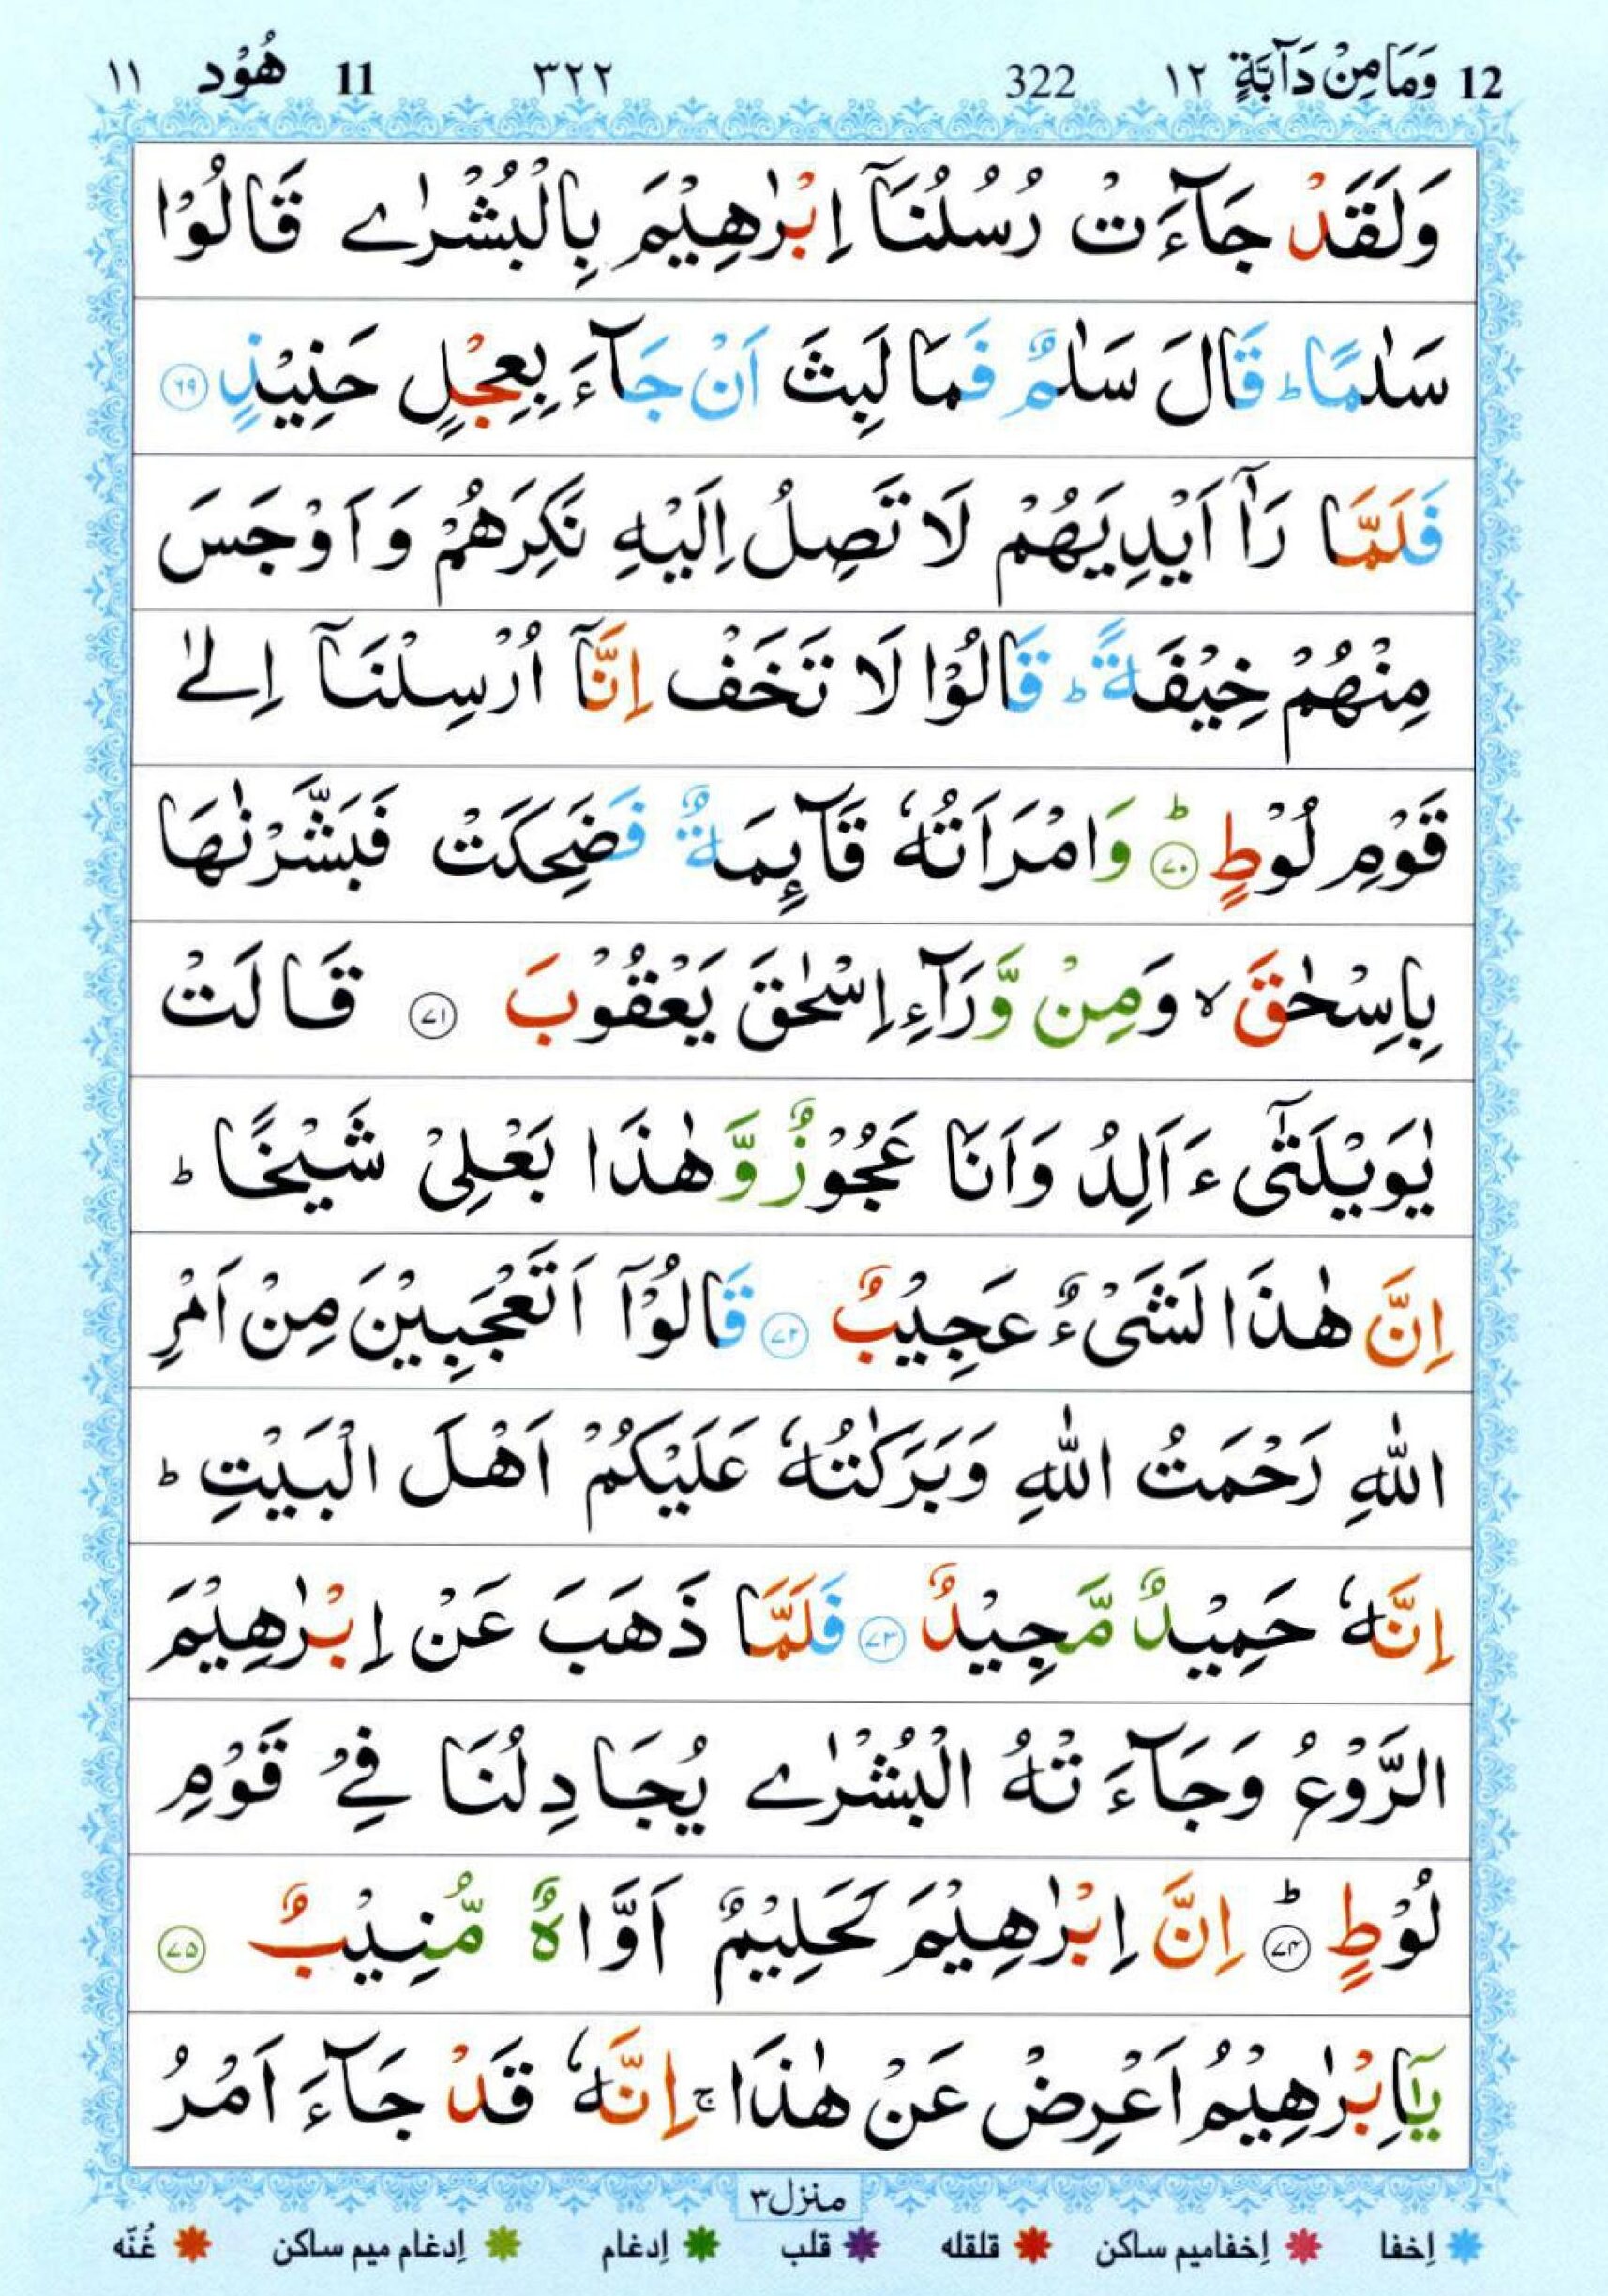 12 وَمَا مِنْ دَآبَّةٍ ١٢ 322 ٣٢٢ 11 هُوْد ١١
وَلَقَدْ جَآءَتْ رُسُلُنَاۤ اِبْرٰهِيْمَ بِالْبُشْرٰے قَالُوْا
سَلٰمًا ؕ قَالَ سَلٰمٌ فَمَا لَبِثَ اَنْ جَآءَ بِعِجْلٍ حَنِيْذٍ ﴿٦٩﴾
فَلَمَّا رَاٰۤ اَيْدِيَهُمْ لَا تَصِلُ اِلَيْهِ نَكِرَهُمْ وَاَوْجَسَ
مِنْهُمْ خِيْفَةً ؕ قَالُوْا لَا تَخَفْ اِنَّاۤ اُرْسِلْنَاۤ اِلٰے
قَوْمِ لُوْطٍ ؕ ﴿٧٠﴾ وَامْرَاَتُهٗ قَآئِمَةٌ فَضَحِكَتْ فَبَشَّرْنٰهَا
بِاِسْحٰقَ ۙ وَمِنْ وَّرَآءِ اِسْحٰقَ يَعْقُوْبَ ﴿٧١﴾ قَالَتْ
يٰوَيْلَتٰٓى ءَاَلِدُ وَاَنَا عَجُوْزٌ وَّهٰذَا بَعْلِىْ شَيْخًا ؕ
اِنَّ هٰذَا لَشَىْءٌ عَجِيْبٌ ﴿٧٢﴾ قَالُوْۤا اَتَعْجَبِيْنَ مِنْ اَمْرِ
اللّٰهِ رَحْمَتُ اللّٰهِ وَبَرَكٰتُهٗ عَلَيْكُمْ اَهْلَ الْبَيْتِ ؕ
اِنَّهٗ حَمِيْدٌ مَّجِيْدٌ ﴿٧٣﴾ فَلَمَّا ذَهَبَ عَنْ اِبْرٰهِيْمَ
الرَّوْعُ وَجَآءَتْهُ الْبُشْرٰے يُجَادِلُنَا فِےْ قَوْمِ
لُوْطٍ ؕ ﴿٧٤﴾ اِنَّ اِبْرٰهِيْمَ لَحَلِيْمٌ اَوَّاهٌ مُّنِيْبٌ ﴿٧٥﴾
يٰۤاِبْرٰهِيْمُ اَعْرِضْ عَنْ هٰذَا ۚ اِنَّهٗ قَدْ جَآءَ اَمْرُ
منزل ٣
اِخفا اِخفامیم ساکن قلقله قلب اِدغام اِدغام میم ساکن غُنّه